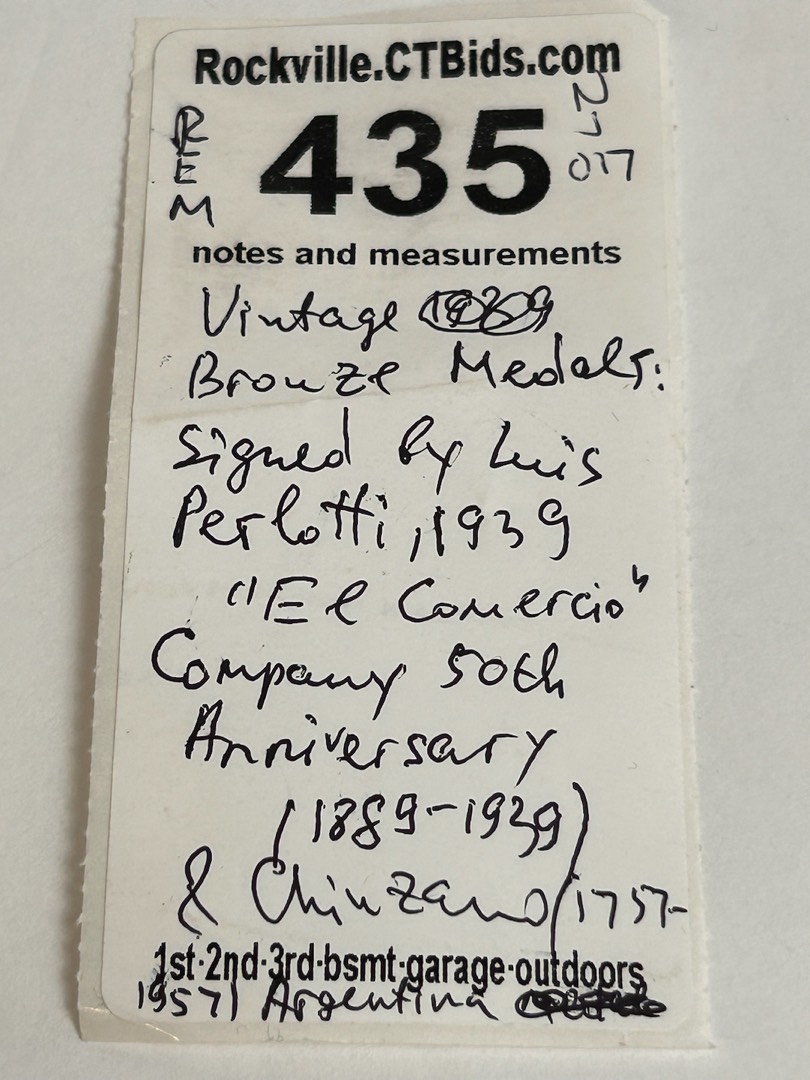 Rockville.CTBids.com
REM
435
notes and measurements
Vintage
Bronze Medals:
Signed by Luis
Perlotti, 1939
"El Comercio"
Company 50th
Anniversary
(1889-1939)
& Chinzano (1757-
1st·2nd·3rd·bsmt·garage·outdoors
1957) Argentina